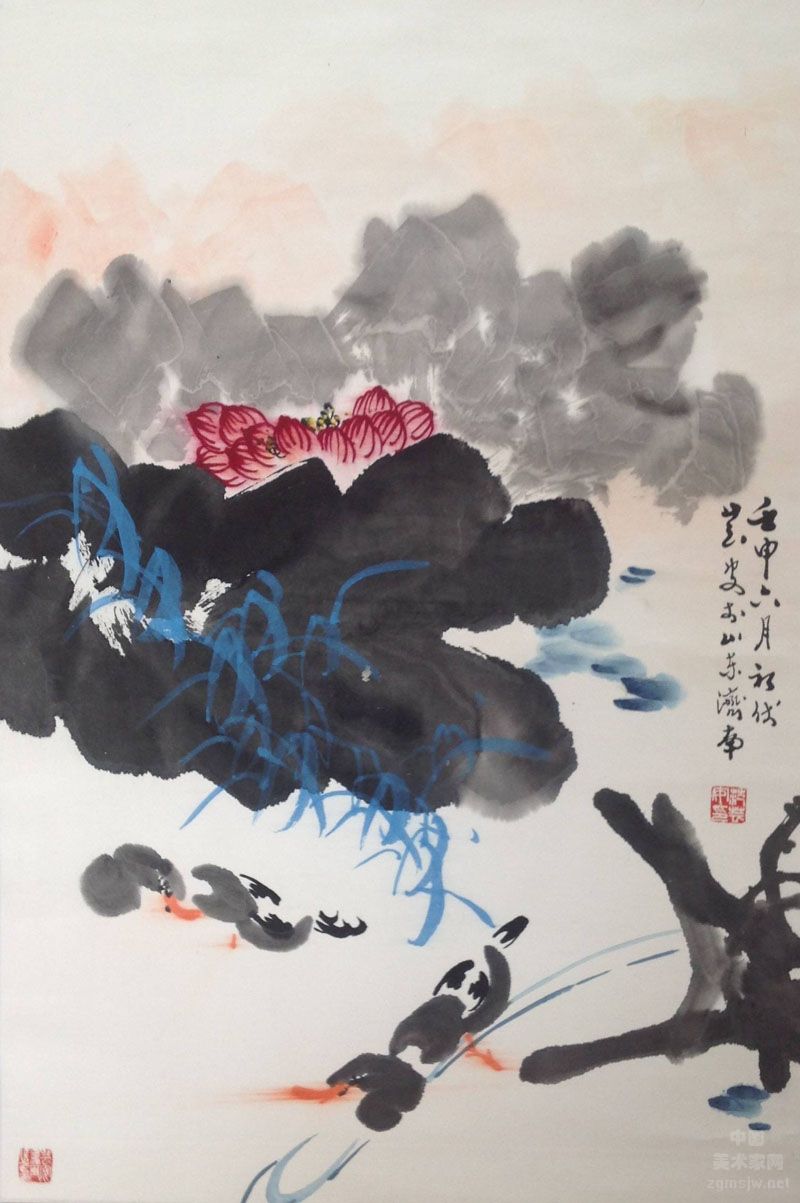 壬申六月初伏
于山东濟南
中国
美术家网
zgmsjw.net